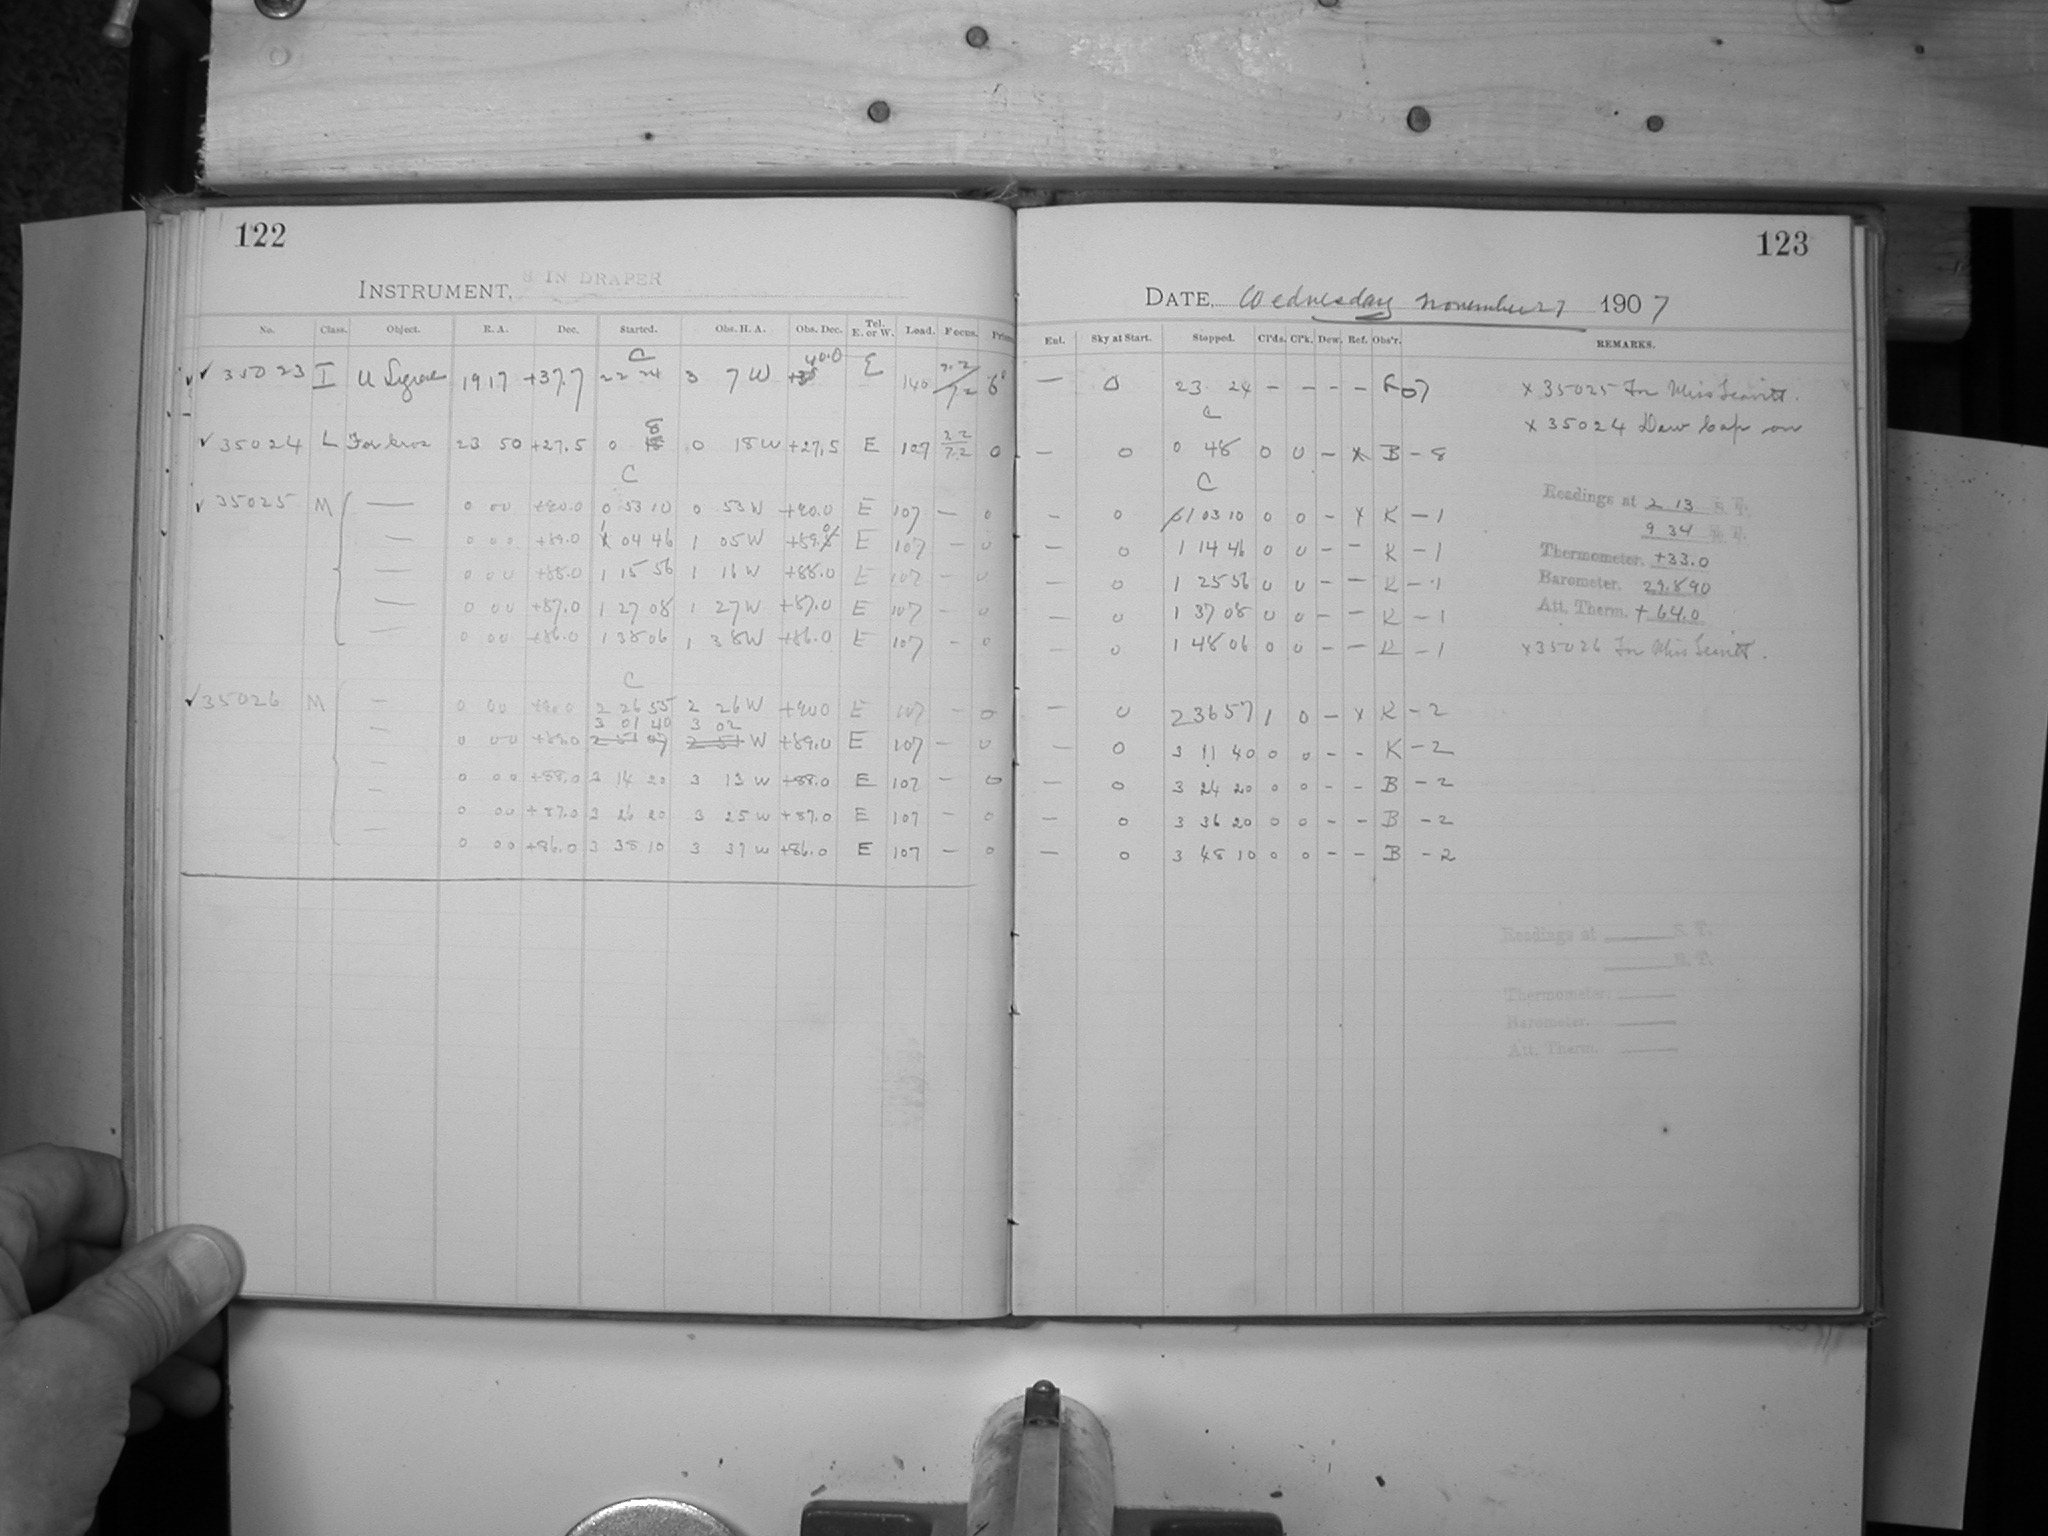 122
INSTRUMENT. 8 IN DRAPER
No. Class. Object. R. A. Dec. Started. Obs. H. A. Obs. Dec. Tel. E. or W. Load. Focus.
C 40.0
✓ 35023 I U 19 17 +37.7 22 24 3 7 W E 140
8
✓ 35024 L 23 50 +27.5 0 0 18 W +27.5 E 107 2.2 / 7.2 0
C
✓ 35025 M — 0 00 +90.0 0 53 10 0 53 W +90.0 E 107 — 0
— 0 00 +89.0 1 04 46 1 05 W E 107 — 0
— 0 00 +88.0 1 15 56 1 16 W +88.0 E 107 — 0
— 0 00 +87.0 1 27 08 1 27 W +87.0 E 107 — 0
— 0 00 +86.0 1 38 06 1 38 W +86.0 E 107 — 0
C
✓ 35026 M — 0 00 +90.0 2 26 55 2 26 W +90.0 E 107 — 0
3 01 40 3 02
— 0 00 +89.0 2 51 2 51 W +89.0 E 107 — 0
— 0 00 +88.0 3 14 20 3 13 W +88.0 E 107 — 0
— 0 00 +87.0 3 26 20 3 25 W +87.0 E 107 — 0
— 0 00 +86.0 3 38 10 3 37 W +86.0 E 107 — 0
123
DATE. Wednesday November 27 1907
Ent. Sky at Start. Stopped. Cl'ds. Cl'k. Dew. Ref. Obs'r. REMARKS.
— 0 23 24 – – – – 07
C
— 0 0 48 0 0 – x B – 8
C
– 0 1 03 10 0 0 – x K – 1
— 0 1 14 46 0 0 – – K – 1
— 0 1 25 56 0 0 – – K – 1
— 0 1 37 08 0 0 – – K – 1
– 0 1 48 06 0 0 – – K – 1
— 0 2 36 57 1 0 – x K – 2
— 0 3 11 40 0 0 – – K – 2
— 0 3 24 20 0 0 – – B – 2
— 0 3 36 20 0 0 – – B – 2
— 0 3 48 10 0 0 – – B – 2
x 35025 For Miss Leavitt.
x 35024 Dew Cap on
Readings at 2 13 S. T.
9 34
Thermometer. +33.0
Barometer. 29.890
Att. Therm. +64.0
x 35026 For Miss Leavitt.
Readings at S. T.
S. T.
Thermometer.
Barometer.
Att. Therm.